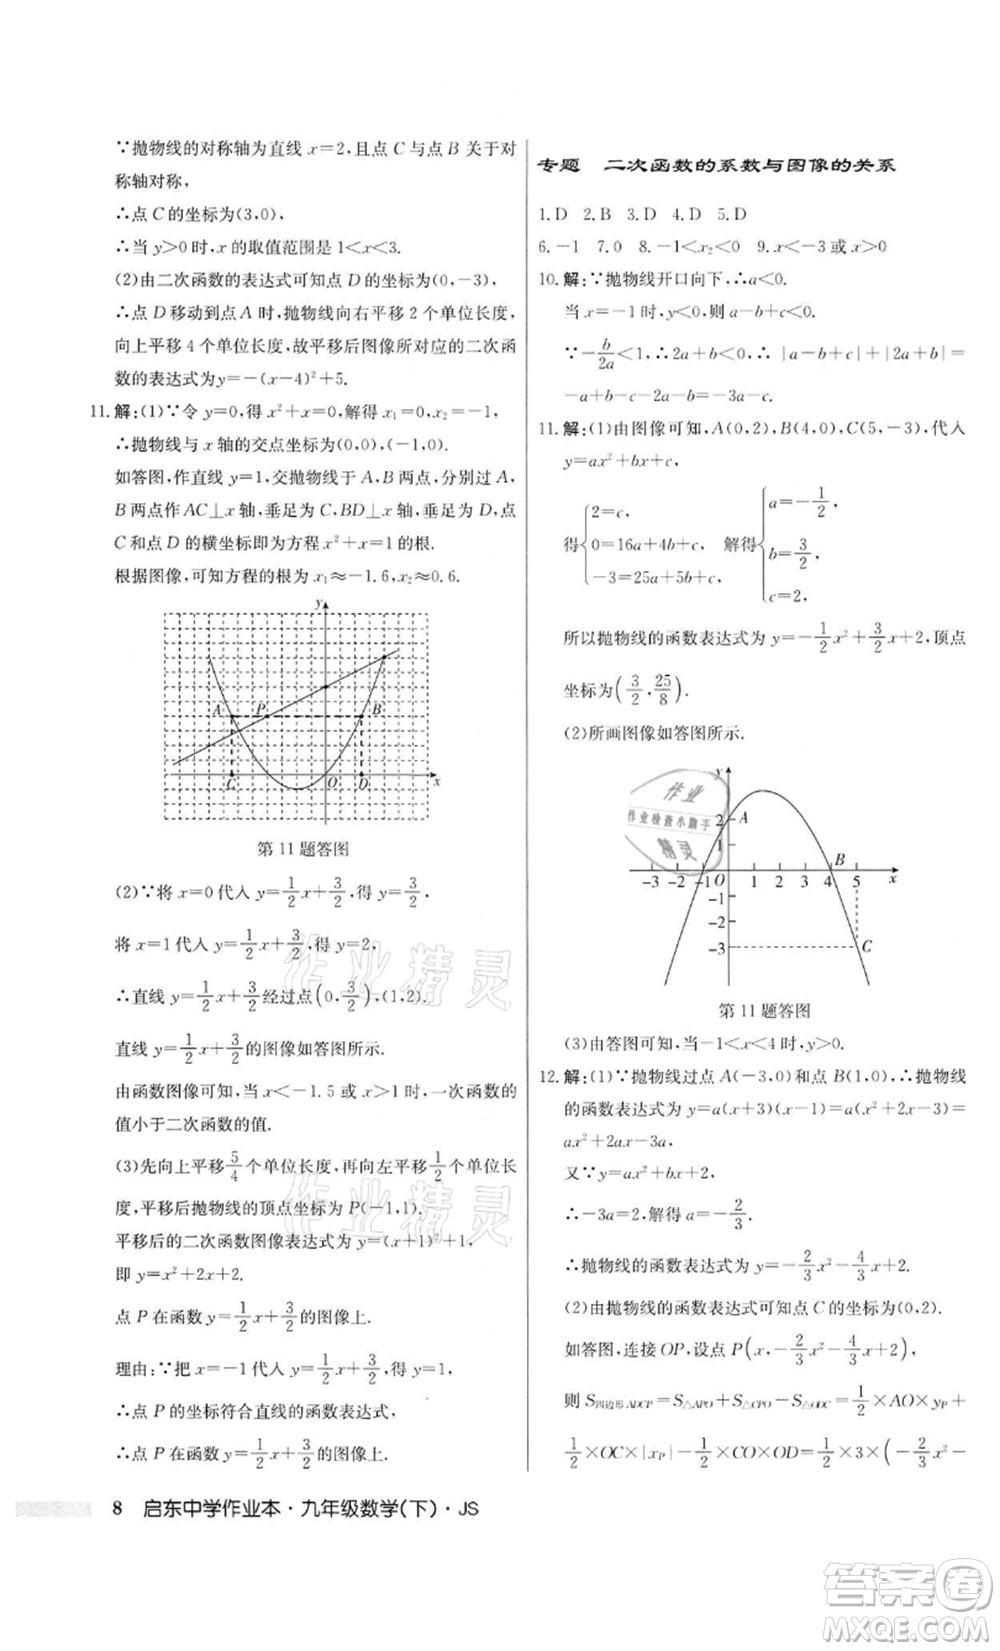 ∵抛物线的对称轴为直线 x=2,且点 C 与点 B 关于对
称轴对称,
∴点 C 的坐标为(3,0),
∴当 y>0 时,x 的取值范围是 1<x<3.
(2)由二次函数的表达式可知点 D 的坐标为(0,-3),
∴点 D 移动到点 A 时,抛物线向右平移 2 个单位长度,
向上平移 4 个单位长度,故平移后图像所对应的二次函
数的表达式为 y=-(x-4)²+5.
11.解:(1)∵令 y=0,得 x²+x=0,解得 x₁=0,x₂=-1,
∴抛物线与 x 轴的交点坐标为(0,0),(-1,0).
如答图,作直线 y=1,交抛物线于 A,B 两点,分别过 A,
B 两点作 AC⊥x 轴,垂足为 C,BD⊥x 轴,垂足为 D,点
C 和点 D 的横坐标即为方程 x²+x=1 的根.
根据图像,可知方程的根为 x₁≈-1.6,x₂≈0.6.
y
A P B
C O D x
第 11 题答图
(2)∵将 x=0 代入 y=1/2 x+3/2,得 y=3/2,
将 x=1 代入 y=1/2 x+3/2,得 y=2,
∴直线 y=1/2 x+3/2 经过点(0,3/2),(1,2).
直线 y=1/2 x+3/2 的图像如答图所示.
由函数图像可知,当 x<-1.5 或 x>1 时,一次函数的
值小于二次函数的值.
(3)先向上平移 5/4 个单位长度,再向左平移 1/2 个单位长
度,平移后抛物线的顶点坐标为 P(-1,1).
平移后的二次函数图像表达式为 y=(x+1)²+1,
即 y=x²+2x+2.
点 P 在函数 y=1/2 x+3/2 的图像上.
理由:∵把 x=-1 代入 y=1/2 x+3/2,得 y=1,
∴点 P 的坐标符合直线的函数表达式,
∴点 P 在函数 y=1/2 x+3/2 的图像上.
专题 二次函数的系数与图像的关系
1.D 2.B 3.D 4.D 5.D
6.-1 7.0 8.-1<x₂<0 9.x<-3 或 x>0
10.解:∵抛物线开口向下,∴a<0.
当 x=-1 时,y<0,则 a-b+c<0.
∵-b/2a<1,∴2a+b<0,∴|a-b+c|+|2a+b|=
-a+b-c-2a-b=-3a-c.
11.解:(1)由图像可知,A(0,2),B(4,0),C(5,-3),代入
y=ax²+bx+c,
得{2=c, 0=16a+4b+c, -3=25a+5b+c, 解得{a=-1/2, b=3/2, c=2,
所以抛物线的函数表达式为 y=-1/2 x²+3/2 x+2,顶点
坐标为(3/2,25/8).
(2)所画图像如答图所示.
y
2 A
1
B
-3 -2 -1 O 1 2 3 4 5 x
-1
-2
-3 C
作业
作业检查小助手
精灵
第 11 题答图
(3)由答图可知,当-1<x<4 时,y>0.
12.解:(1)∵抛物线过点 A(-3,0)和点 B(1,0),∴抛物线
的函数表达式为 y=a(x+3)(x-1)=a(x²+2x-3)=
ax²+2ax-3a,
又∵y=ax²+bx+2,
∴-3a=2,解得 a=-2/3.
∴抛物线的函数表达式为 y=-2/3 x²-4/3 x+2.
(2)由抛物线的函数表达式可知点 C 的坐标为(0,2).
如答图,连接 OP,设点 P(x,-2/3 x²-4/3 x+2),
则 S四边形ADCP=S△APO+S△CPO-S△ODC=1/2×AO×yP+
1/2×OC×|xP|-1/2×CO×OD=1/2×3×(-2/3 x²-
8 启东中学作业本·九年级数学(下)·JS
作业精灵
作业精灵
答案圈
MXQE.COM